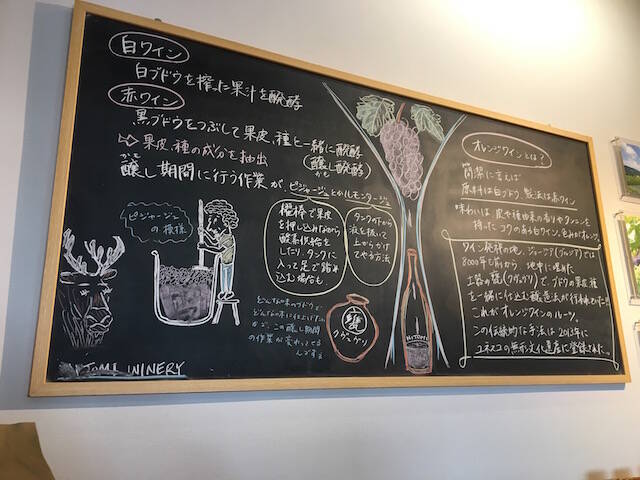 白ワイン
白ブドウを搾った果汁を醗酵
赤ワイン
黒ブドウをつぶして果皮、種と一緒に醗酵
⇨果皮、種の成分を抽出
(醸し醗酵)
かも
かも
醸し期間に行う作業が、ピジャージュとルモンタージュ
ピジャージュ
の模様
櫂棒で果皮
を押し込みながら
酸素供給を
したり、タンクに
入って足で踏み
込む場合も
タンクの下から
液を抜いて
上からかけ
てやる方法
どんな味のブドウで
どんな味に仕上げたい
かで、この醸し期間
の作業が変わってくる
んですね
甕
クヴェヴリ
HITOMI
HITOMI WINERY
オレンジワインとは?
簡潔に言えば
原料は白ブドウ、製法は赤ワイン
味わいは、皮や種由来の香りやタンニンを
持った、コクのあるものワイン。色みがオレンジ。
ワイン発祥の地、ジョージア(グルジア)では
8000年も前から、地中に埋めた
土器の甕(クヴェヴリ)で、ブドウの果皮、種
を一緒に仕込む醸造法が行われていた!!
これがオレンジワインのルーツ。
この伝統的な手法は2013年に
ユネスコの無形文化遺産に登録された。